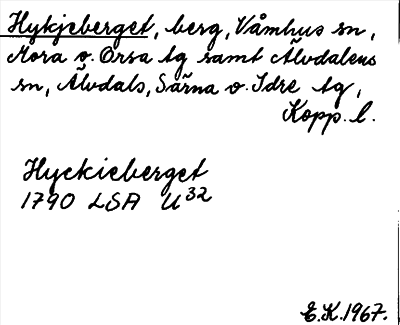 Hykjeberget, berg, Våmhus sn,
Mora o. Orsa tg samt Älvdalens
sn, Älvdals, Särna o. Idre tg,
Kopp. l.
Hyckieberget
1790 LSA U32
E.K. 1967.